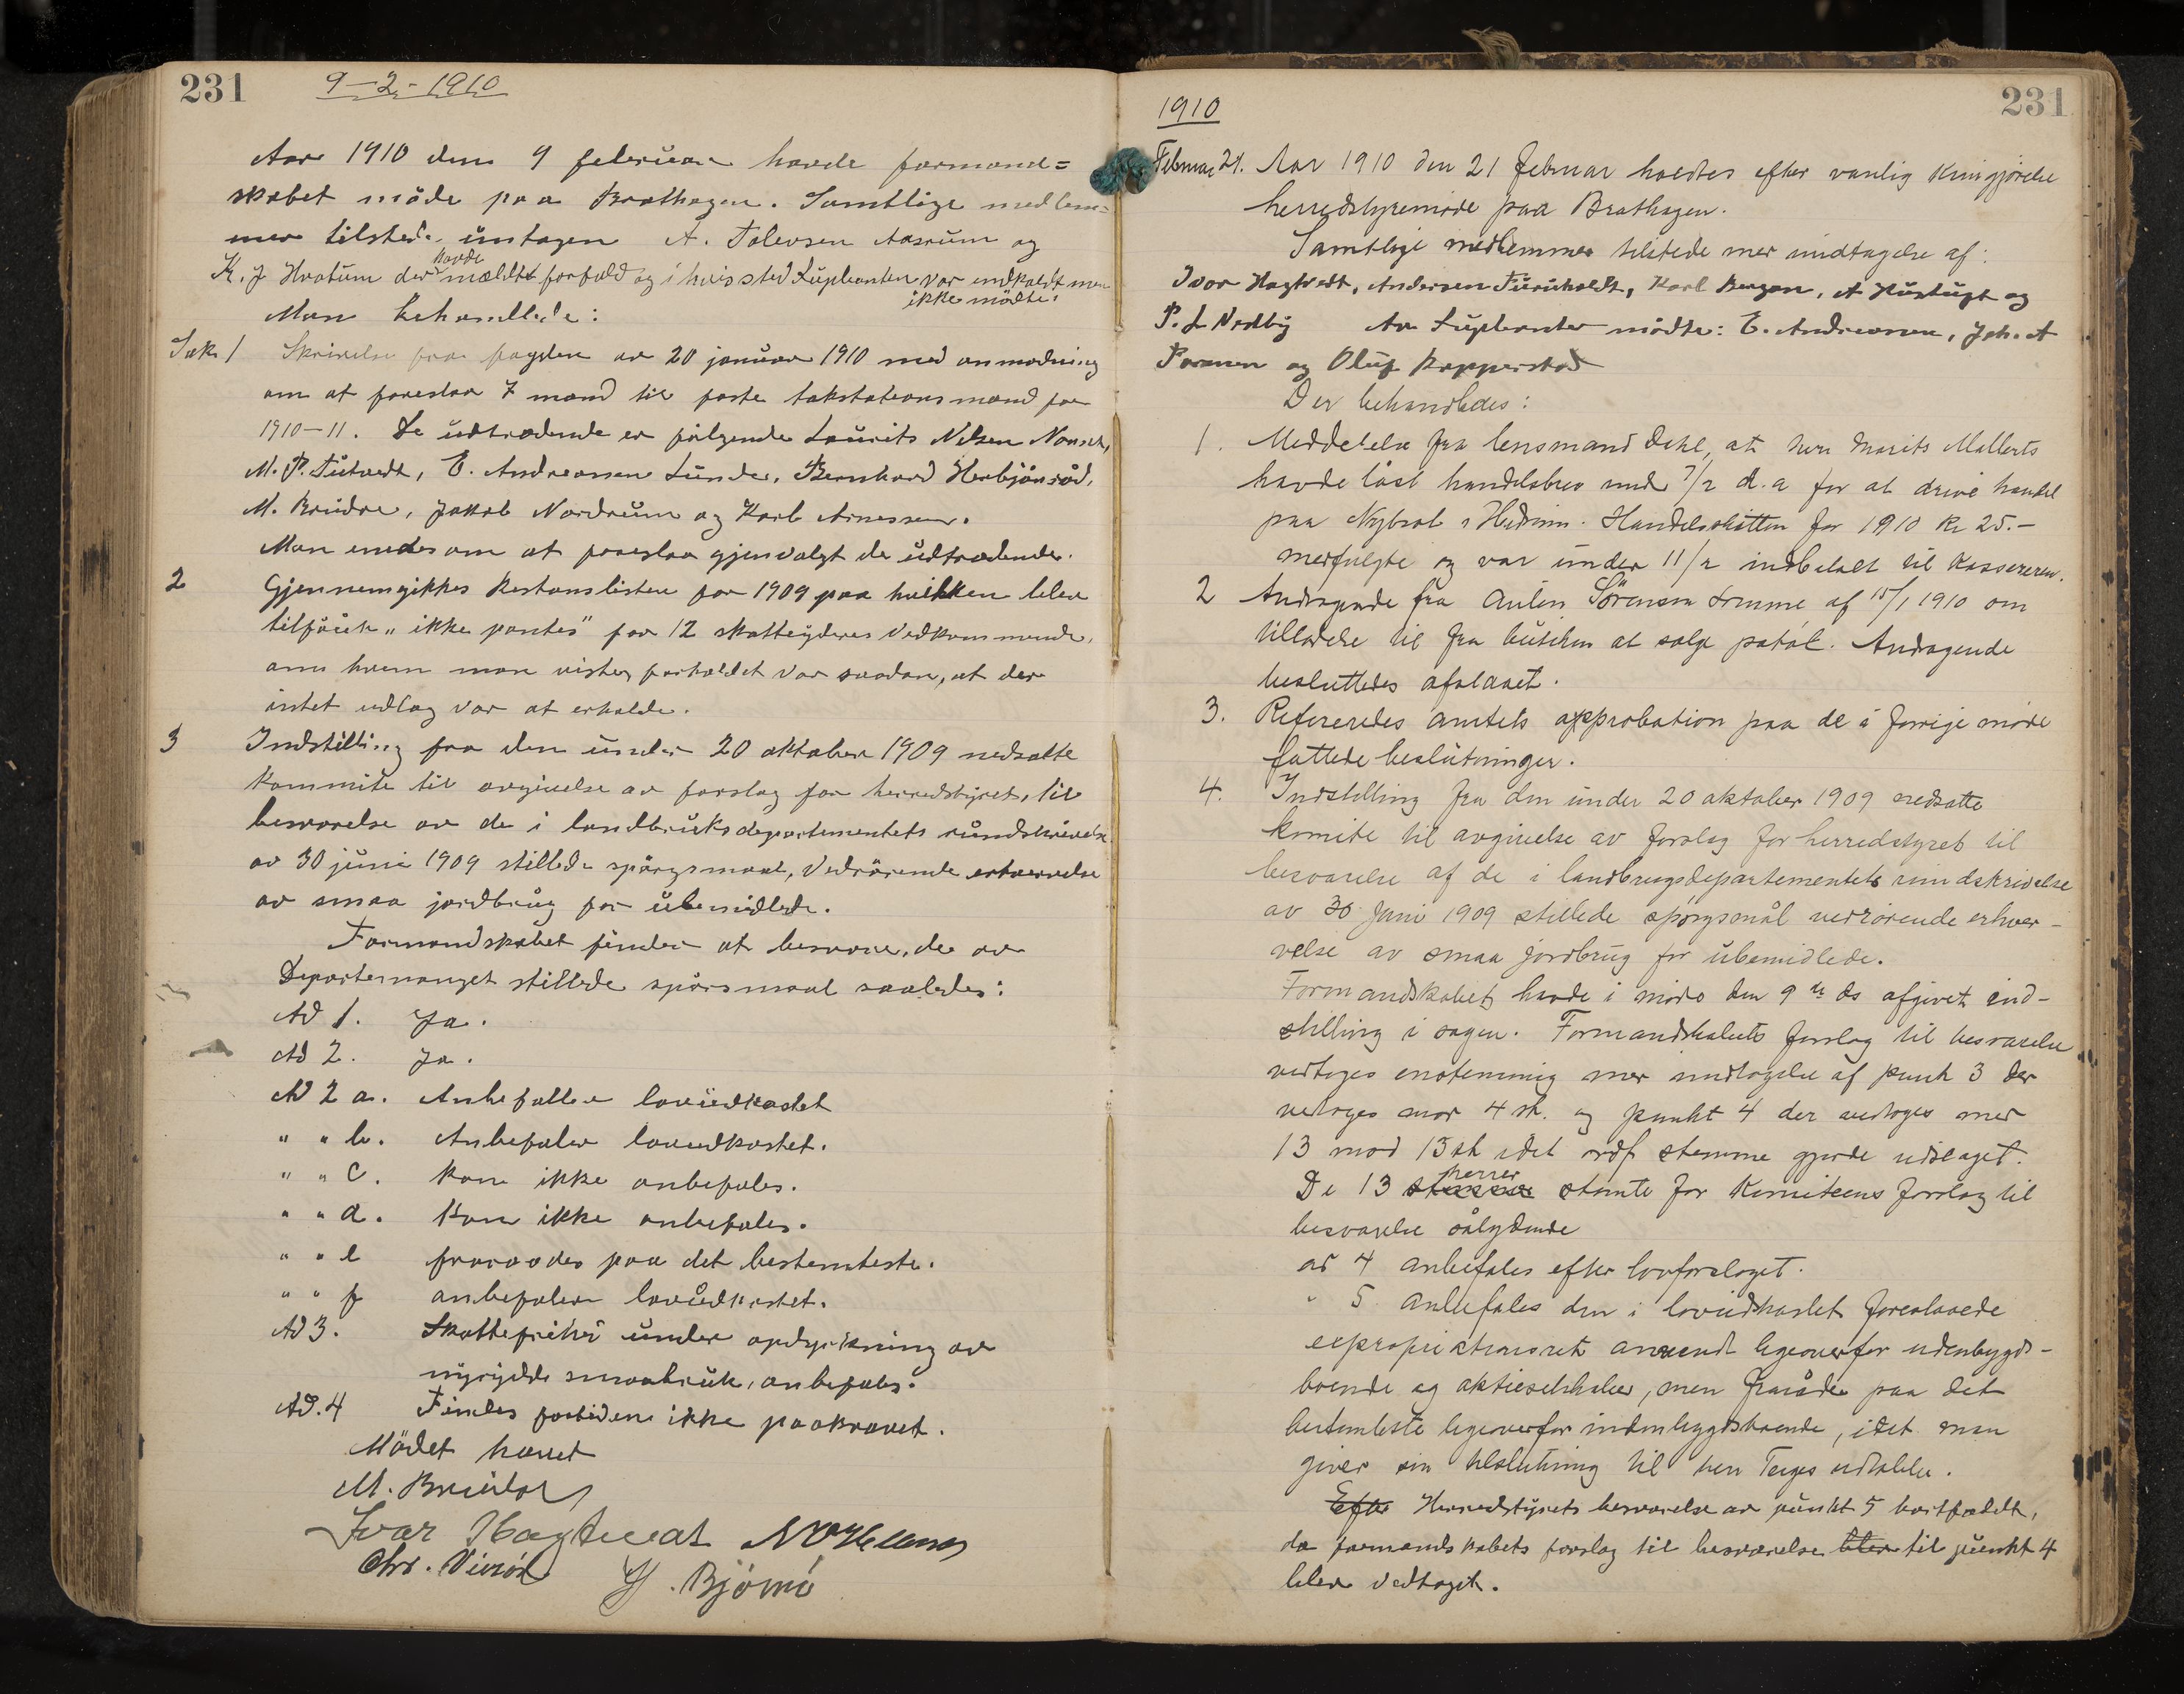 231
9-2-1910
Aar 1910 den 9 februar havde formand=
skabet möde paa Brathagen. Samtlige medlem=
mer tilstede untagen A. Tolevsen Aasrum og
K. J Hvatum der havde mældt forfald og i hvis sted Supleanten var indkaldt men
ikke mödte.
Man behandlede:
Sak 1 Skrivelse fra fogden av 20 januar 1910 med anmodning
om at foreslaa 7 mand til faste takstationsmænd for
1910-11. De udtrædende er følgende Laurits Nilsen
M. P. Tütvedt, E. Andreassen Lunde, Bernhard Herbjönröd,
M. Bruidor, Jakob Nordrum og Karl Arnessen.
Man enedes om at foreslaa gjenvalgt de udtrædende.
2 Gjennemgikkes Restanslisten for 1909 paa hvilkken blev
tilføiet "ikke pantes" for 12 skatteyderes Vedkommende,
om hvem man vistes forholdet var saadan, at der
intet udlæg var at erholde.
3 Indstilling fra den under 20 oktober 1909 nedsatte
kommite til avgivelse av forslag for herredstyret, til
besvarelse av de i landbruksdepartementets rundskrivelse
av 30 juni 1909 stillede spörgsmaal, Vedrörende erhvervelse
av smaa jordbrug for ubemidlede.
Formandskabet finder at besvare, de av
stillede spörsmaal saaledes:
Ad 1. Ja.
Ad 2. Ja.
Ad 2 a. Anbefaller lovudkastet
" " b. Anbefaler lovudkastet.
" " c. kan ikke anbefales.
" " d. Kan ikke anbefales.
" " e fraraades paa det bestemteste.
" " f anbefaler lovudkastet.
Ad 3. Skattefrihet under opdyrkning av
nyrydde smaabruk, anbefales.
Ad. 4 Findes fortiden ikke paakrævet.
Mödet hævet
M. Bruidor
Ivar Hagtvedt
Chr. Virröd
Björnö
1910
231
Februar 21. Aar 1910 den 21 februar holdtes efter vanlig kungjörelse
herredstyremöde paa Brathagen.
Samtlige medlemmer tilstede med undtagelse af:
Ivar Hagtvedt, Andersen Furuholdt, Karl Bergan, A Hustuft og
P. L Nedby Av Supleanter mödte: E. Andreassen, Joh. A
og Oluf Kopperstad
Der behandledes:
1. Meddelelse fra lensmand Dahl, at herr Marits Mallerts
havde löst handelsbrev under 7/2 d. a for at drive handel
paa Nybrot i Hedrum. Handelsskatten for 1910 Kr 25.-
medfulgte og var under 11/2 indbetalt til Kassereren.
2 Andragende fra Anton Sörensen Lomme af 15/1 1910 om
tilladelse til fra butiken at sælge patöl. Andragende
besluttedes afslaaet.
3. Refereredes amtets approbation paa de i forrige möde
fattede beslutninger.
4. Indstilling fra den under 20 oktober 1909 nedsatte
komite til avgivelse av forslag for herredstyret til
besvarelse af de i landbrugsdepartementets rundskrivelse
av 30 Juni 1909 stillede spörgsmål vedrörende erhver-
velse av smaa jordbrug for ubemidlede.
Formandskabet havde i möde den 9 de ds afgivet ind-
stilling i sagen. Formandskabets forslag til besvarelse
vedtoges enstemmig med undtagelse af punk 3 der
vedtoges mod 4 st. og punkt 4 der vedtoges med
13 mod 13 st idet ordf stemme gjorde udslaget.
De 13 herrer stemte for Komiteens forslag til
besvarelse sålydende
ad 4 anbefales efter lovforslaget.
" 5 anbefales den i lovudkastet foreslaaede
expropriationsret anvendt ligeoverfor udenbygds-
boende og aktieselskaber, men frarådes paa det
bestemteste ligeoverfor indenbygdsboende, idet man
giver sin tilslutning til herr Tages udtalelse.
Efter Herredstyrets besvarelse av punkt 5 bortfaldt,
da formandskabets forslag til besvarelse blev til punkt 4
blev vedtaget.